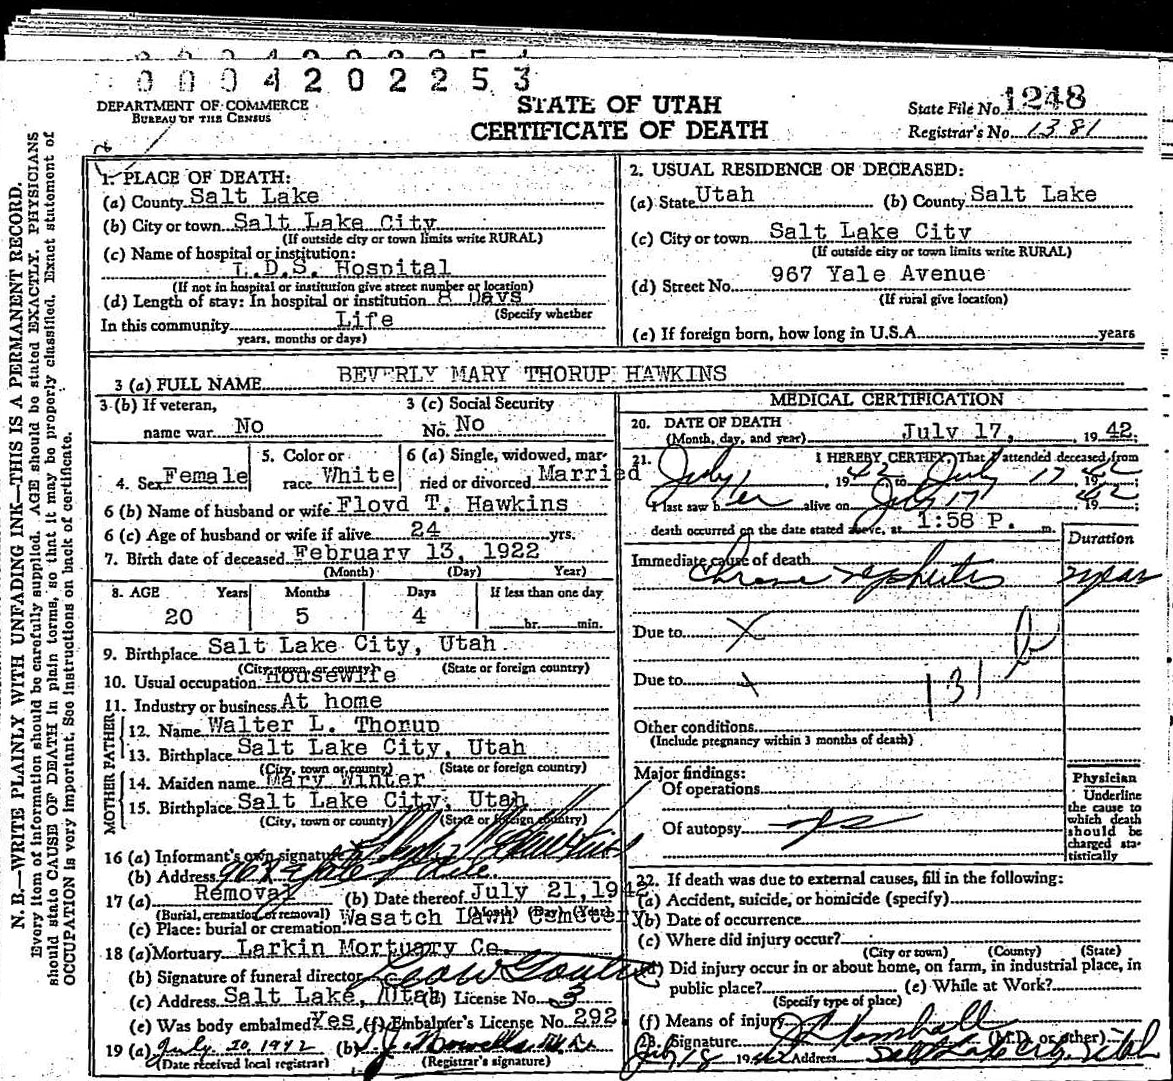 0004202253
DEPARTMENT OF COMMERCE
BUREAU OF THE CENSUS
STATE OF UTAH
CERTIFICATE OF DEATH
State File No. 1248
Registrar's No. 1381
N. B.—WRITE PLAINLY WITH UNFADING INK—THIS IS A PERMANENT RECORD.
Every item of information should be carefully supplied. AGE should be stated EXACTLY. PHYSICIANS
should state CAUSE OF DEATH in plain terms, so that it may be properly classified. Exact statement of
OCCUPATION is very important. See instructions on back of certificate.
1. PLACE OF DEATH:
(a) County Salt Lake
(b) City or town Salt Lake City
(If outside city or town limits write RURAL)
(c) Name of hospital or institution:
L.D.S. Hospital
(If not in hospital or institution give street number or location)
(d) Length of stay: In hospital or institution 8 Days
(Specify whether
In this community Life
years, months or days)
2. USUAL RESIDENCE OF DECEASED:
(a) State Utah (b) County Salt Lake
(c) City or town Salt Lake City
(If outside city or town limits write RURAL)
(d) Street No. 967 Yale Avenue
(If rural give location)
(e) If foreign born, how long in U.S.A. years
3 (a) FULL NAME BEVERLY MARY THORUP HAWKINS
3 (b) If veteran, 3 (c) Social Security
name war No No. No
4. Sex Female 5. Color or race White 6 (a) Single, widowed, married or divorced Married
6 (b) Name of husband or wife Floyd T. Hawkins
6 (c) Age of husband or wife if alive 24 yrs.
7. Birth date of deceased February 13, 1922
(Month) (Day) Year)
8. AGE Years Months Days If less than one day
20 5 4 hr. min.
9. Birthplace Salt Lake City, Utah
(City, town or county) (State or foreign country)
10. Usual occupation Housewife
11. Industry or business At home
FATHER
12. Name Walter L. Thorup
13. Birthplace Salt Lake City, Utah
(City, town or county) (State or foreign country)
MOTHER
14. Maiden name Mary Winter
15. Birthplace Salt Lake City, Utah
(City, town or county) (State or foreign country)
16 (a) Informant's own signature
(b) Address
17 (a) Removal (b) Date thereof July 21, 1942
(Burial, cremation or removal) (Month) (Day) (Year)
(c) Place: burial or cremation Wasatch Lawn Cemetery
18 (a) Mortuary Larkin Mortuary Co.
(b) Signature of funeral director
(c) Address Salt Lake, Utah (d) License No. 3
(e) Was body embalmed Yes (f) Embalmer's License No. 292
19 (a) July 20, 1942 (b)
(Date received local registrar) (Registrar's signature)
MEDICAL CERTIFICATION
20. DATE OF DEATH
(Month, day, and year) July 17, 1942
21. I HEREBY CERTIFY, That I attended deceased from
July 1942 to July 17 1942;
I last saw her alive on July 17 1942;
death occurred on the date stated above, at 1:58 P. m.
Duration
Immediate cause of death
Chronic nephritis
Due to X
Due to X
131 b
Other conditions
(Include pregnancy within 3 months of death)
Major findings:
Of operations
Of autopsy yes
Physician
Underline
the cause to
which death
should be
charged statistically
22. If death was due to external causes, fill in the following:
(a) Accident, suicide, or homicide (specify)
(b) Date of occurrence
(c) Where did injury occur?
(City or town) (County) (State)
(d) Did injury occur in or about home, on farm, in industrial place, in
public place? (e) While at Work?
(Specify type of place)
(f) Means of injury
23. Signature (M.D. or other)
July 18 1942 Address Salt Lake City, Utah